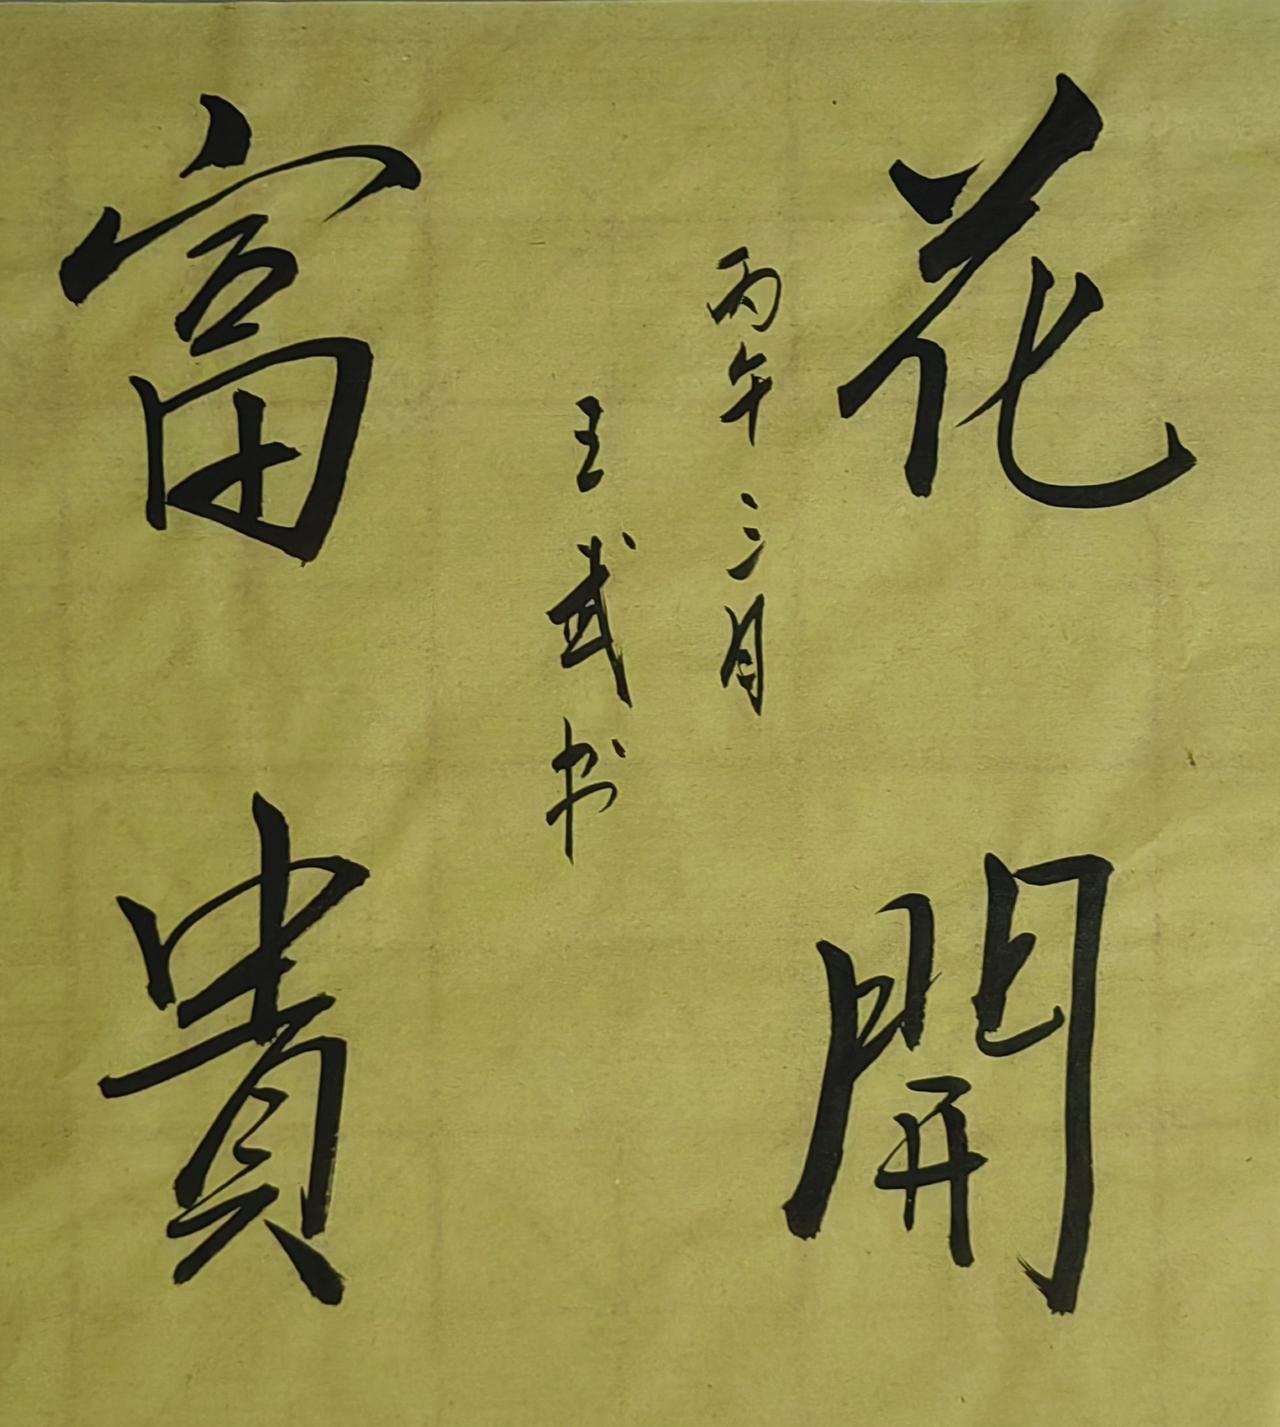 花開
丙午三月
王武书
富貴